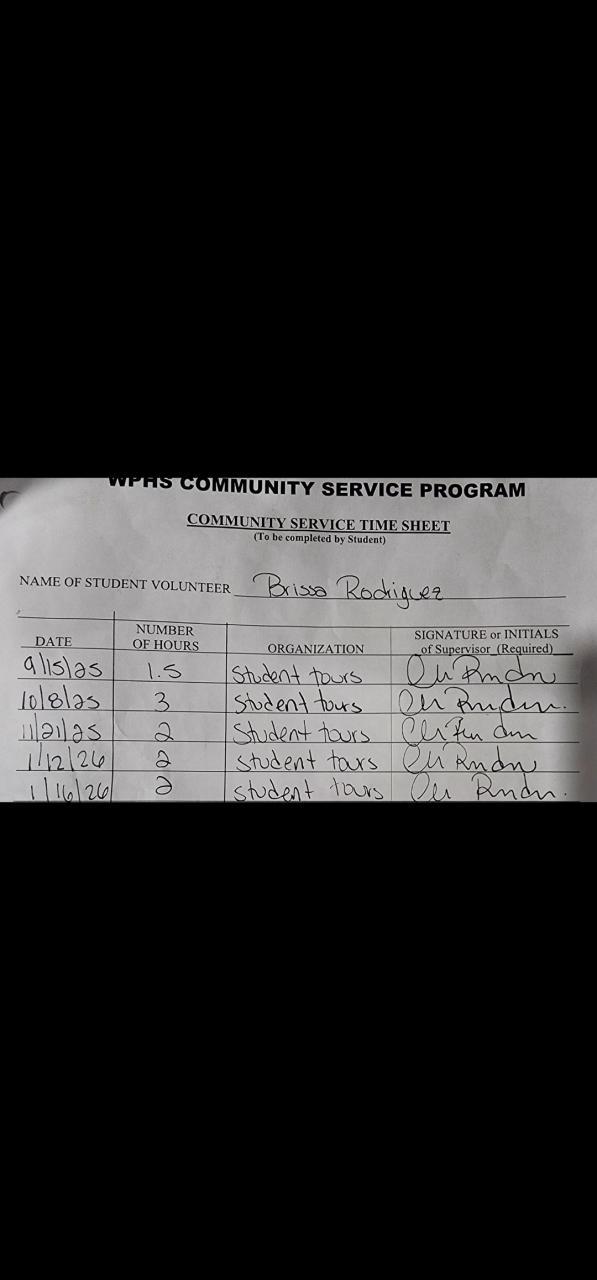 WPHS COMMUNITY SERVICE PROGRAM
COMMUNITY SERVICE TIME SHEET
(To be completed by Student)
NAME OF STUDENT VOLUNTEER Brissa Rodriguez
DATE NUMBER OF HOURS ORGANIZATION SIGNATURE or INITIALS of Supervisor (Required)
9/15/25 1.5 Student tours
10/8/25 3 Student tours
11/21/25 2 Student tours
1/12/26 2 student tours
1/16/26 2 student tours